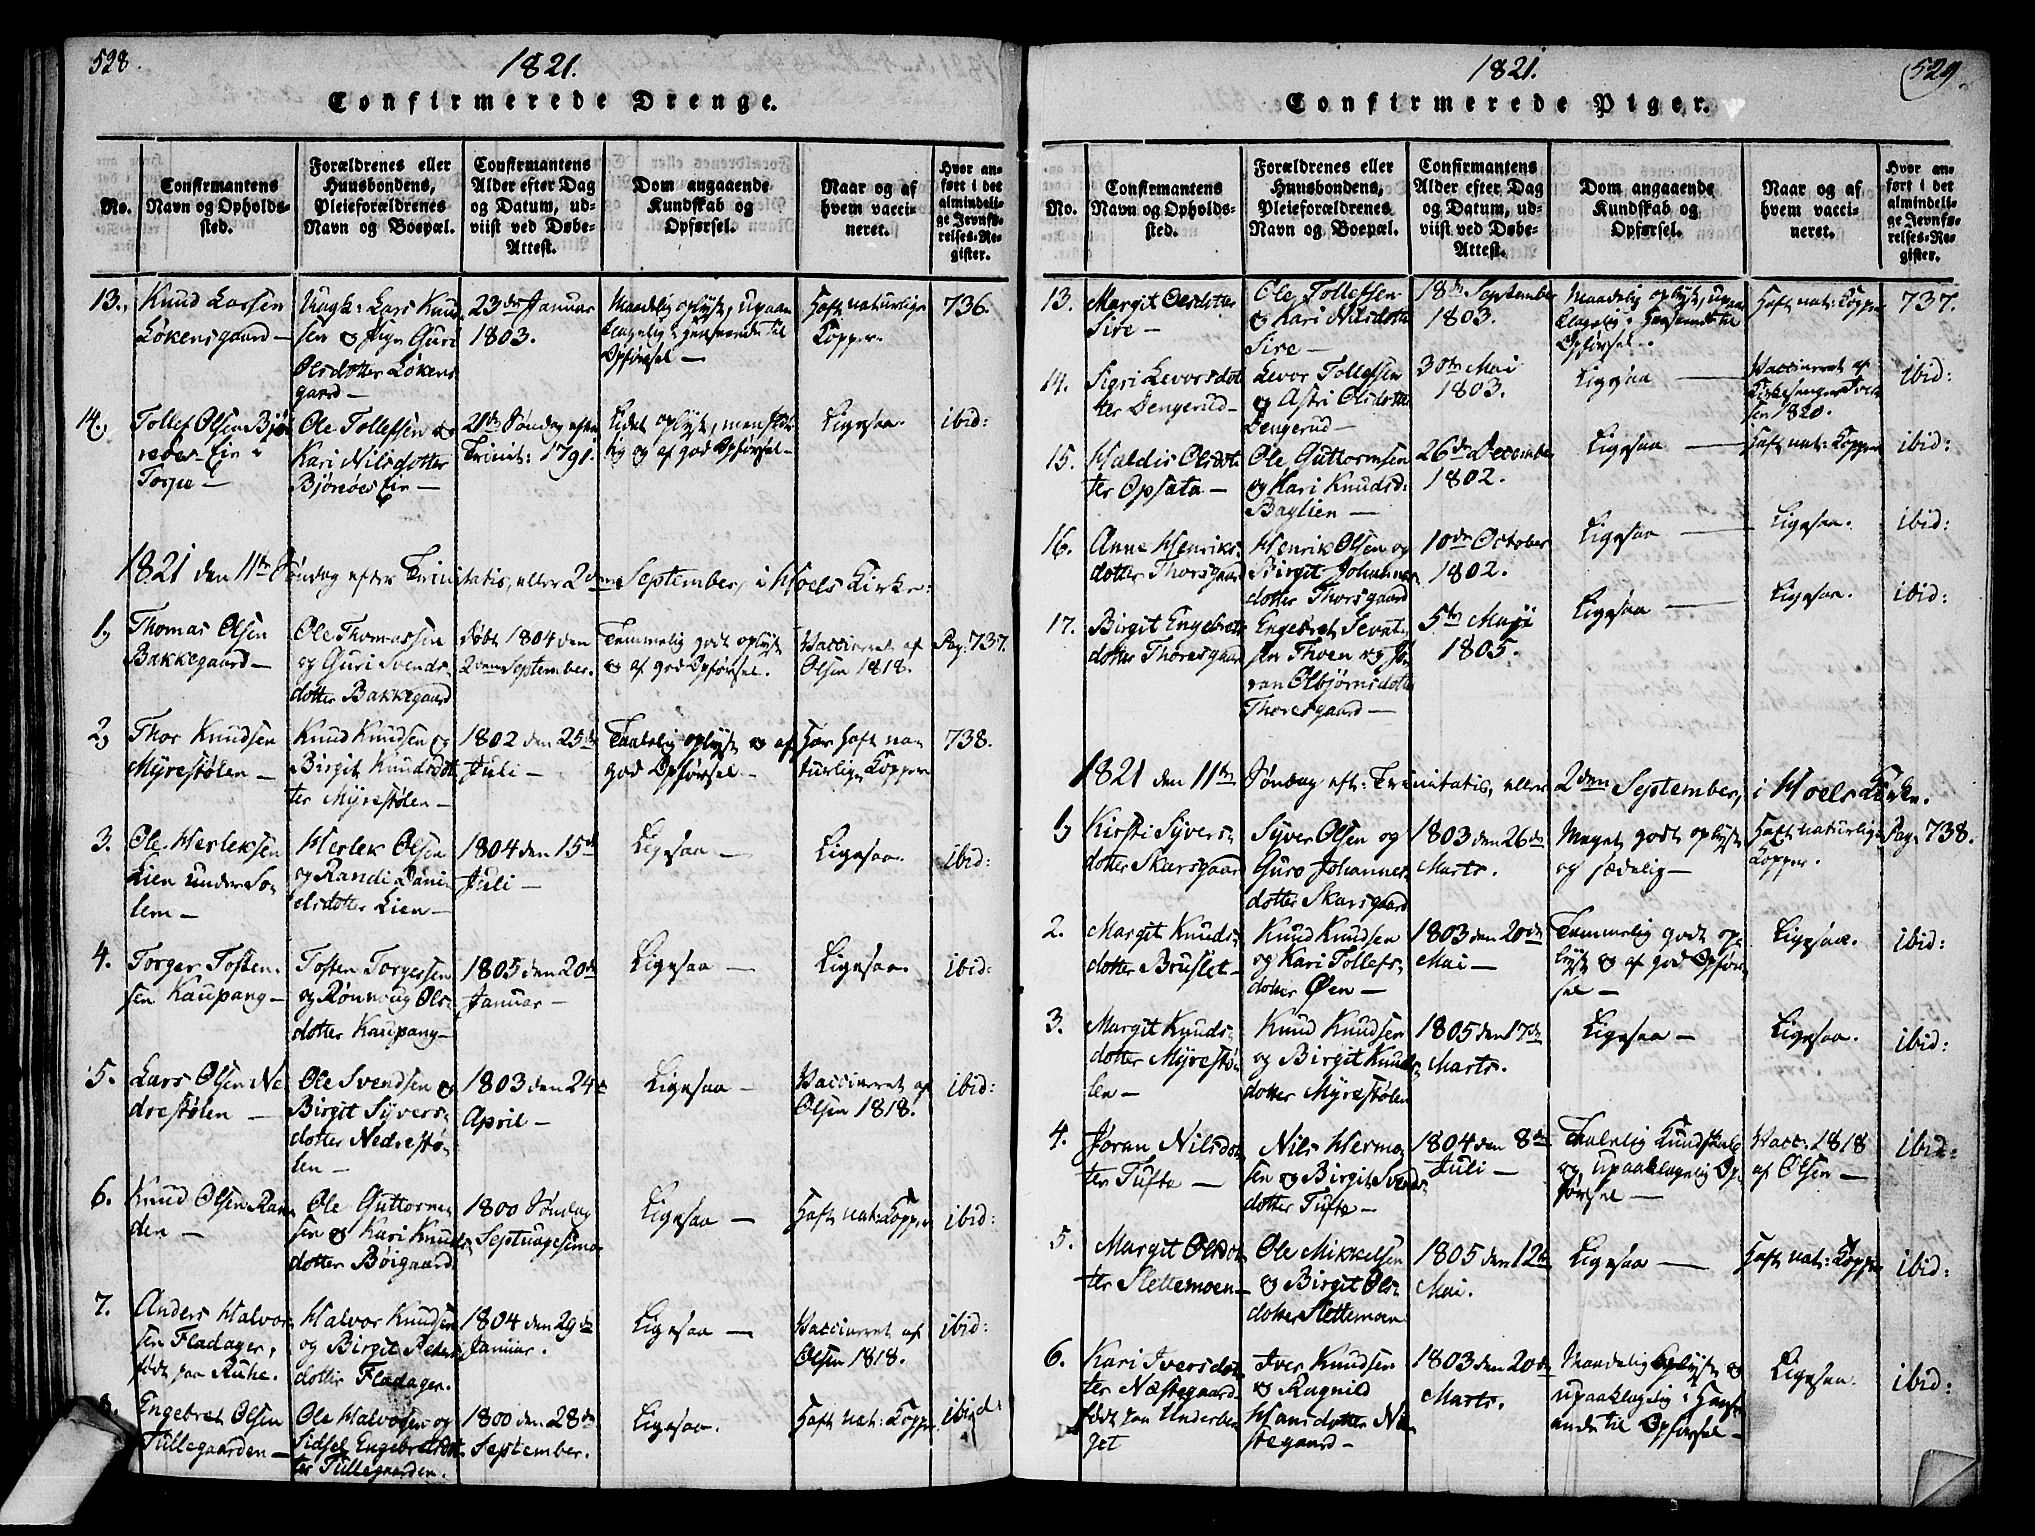 528.
1821.
Confirmerede Drenge.
No.
Confirmantens
Navn og Opholds-
sted.
Forældrenes eller
Huusbondens,
Pleieforældrenes
Navn og Boepæl.
Confirmantens
Alder efter Dag
og Datum, ud-
viist ved Døbe-
Attest.
Dom angaaende
Kundskab og
Opførsel.
Naar og af
hvem vacci-
neret.
Hvor an-
ført i det
almindeli-
ge Jevnfø-
relses-Re-
gister.
13.
Knud Larsen
Løkensgaard —
Ungk: Lars Knud
sen & Pige Guri
Olsdotter Løkens
gaard —
23de Januar
1803.
Maadelig oplyst, upaa
klagelig i Henseende til
Opførsel —
Haft naturlige
Kopper.
736.
14,
Tollef Olsen Bjø
roes Eie i
Torpe —
Ole Tollefsen &
Kari Nilsdotter
Bjøroes Eie —
21de Søndag efter
Trinit: 1791.
Lidet oplyst, men skik
lig og af god Opførsel —
Ligesaa.
ibid:
1821 den 11te Søndag efter Trinitatis, eller 2den September, i Hoels Kirke:
1,
Thomas Olsen
Bakkegaard —
Ole Thomassen
og Guri Svends
dotter Bakkegaard
Født 1804 den
2den September.
Temmelig godt oplyst
& af god Opførsel.
Vaccineret af
Olsen 1818.
Pag. 737.
2,
Thor Knudsen
Myrestølen —
Knud Knudsen &
Birgit Knudsdot
ter Myrestølen —
1802 den 25de
Juli —
Taalelig oplyst & af
god Opførsel —
Har haft na
turlige Kopper
738.
3.
Ole Herleksen
Lien under So
lem —
Herlek Olsen
og Randi Dani
elsdotter Lien —
1804 den 15de
Juli —
Ligesaa —
Ligesaa.
ibid:
4.
Torger Tosten-
sen Kaupang —
Tosten Torgersen
og Rønnoug Ols-
dotter Kaupang —
1805 den 20de
Januar —
Ligesaa —
Ligesaa.
ibid:
5.
Lars Olsen Ne
drestølen —
Ole Svendsen &
Birgit Syvers-
dotter Nedrestø-
len —
1803 den 24de
April —
Ligesaa —
Vaccineret af
Olsen 1818.
ibid:
6.
Knud Olsen
den —
Ole Guttorm
sen & Kari Knuds
dotter Bøigaard
1800 Søndag
Septuagesima
Ligesaa —
Haft nat: Kopper
ibid:
7.
Anders Halvor
sen Fladager,
født paa Ruhe.
Halvor Knudsen
og Birgit Peders
dotter Fladager.
1804 den 29de
Januar.
Ligesaa —
Vaccineret af
Olsen 1818.
ibid:
8.
Engebret Olsen
Tillegaarden —
Ole Halvorsen og
Sidsel Engebretsdot
ter Tillegaarden.
1800 den 28de
September.
Ligesaa.
Haft nat: Kopper.
ibid:
1821.
529.
Confirmerede Piger.
No.
Confirmantens
Navn og Opholds-
sted.
Forældrenes eller
Huusbondens,
Pleieforældrenes
Navn og Boepæl.
Confirmantens
Alder efter Dag
og Datum, ud-
viist ved Døbe-
Attest.
Dom angaaende
Kundskab og
Opførsel.
Naar og af
hvem vacci-
neret.
Hvor an-
ført i det
almindeli-
ge Jevnfø-
relses-Re-
gister.
13.
Margit Olsdotter
Sire —
Ole Tollefsen
& Kari Nilsdotter
Sire —
18de September
1803.
Maadelig oplyst, upaa
klagelig i Henseende til
Opførsel.
Haft nat: Kopper
737.
14.
Sigri Levorsdot
ter Dengerud —
Levor Tollefsen
og Astri Olsdotter
Dengerud —
30te Mai
1803.
Ligesaa —
Vaccineret af
Kirkesanger
sen 1820.
ibid:
15.
Haldis Olsdot
ter Opsata —
Ole Guttormsen
og Kari Knudsd:
Baglien —
26de December
1802.
Ligesaa —
Haft nat: Kopper
ibid:
16.
Anne Henriks-
dotter Thorsgaard
Henrik Olsen og
Birgit Johannes
dotter Thorsgaard
10de October
1802.
Ligesaa —
Ligesaa.
ibid:
17.
Birgit Engebrets
dotter Thoresgaard
Engebret Sevat-
sen Thoen og Jø
ran Olbjørnsdotter
Thoresgaard —
5te Maji
1805.
Ligesaa —
Ligesaa.
ibid:
1821 den 11te Søndag eft: Trinitatis, eller 2den September, i Hoels Kirke.
1,
Kirsti Syvers-
dotter Skarsgaard
Syver Olsen og
Guro Johannes
dotter Skarsgaard
1803 den 26de
Marts.
Meget godt oplyst
og sædelig —
Haft naturlige
Kopper.
Pag. 738.
2.
Margit Knuds-
dotter Bruslet —
Knud Knudsen
og Kari Tollefs-
dotter Øen —
1803 den 20de
Mai —
Temmelig godt op-
lyst & af god Opfør
sel —
Ligesaa.
ibid:
3.
Margit Knuds-
dotter Myrestø-
len —
Knud Knudsen
og Birgit Knuds
dotter Myrestølen
1805 den 17de
Marts.
Ligesaa —
Ligesaa.
ibid:
4.
Jøran Nilsdot
ter Tufte —
Nils Herm
sen & Birgit Svends
dotter Tufte —
1804 den 8de
Juli —
Taalelig Kundskab
og upaaklagelig Op
førsel —
Vacc: 1818
af Olsen —
ibid:
5.
Margit Olsdot
ter Slettemoen —
Ole Mikkelsen
& Birgit Ols-
dotter Slettemoen
1805 den 12te
Mai.
Ligesaa —
Haft nat: Kopper
ibid:
6.
Kari Iversdot
ter Næstegaard
født paa Underber
get
Iver Knudsen
& Ragnild
Hansdotter Næ
stegaard —
1803 den 20de
Marts.
Maadelig Oplyst &
upaaklagelig i Hense
ende til Opførsel —
Ligesaa.
ibid: